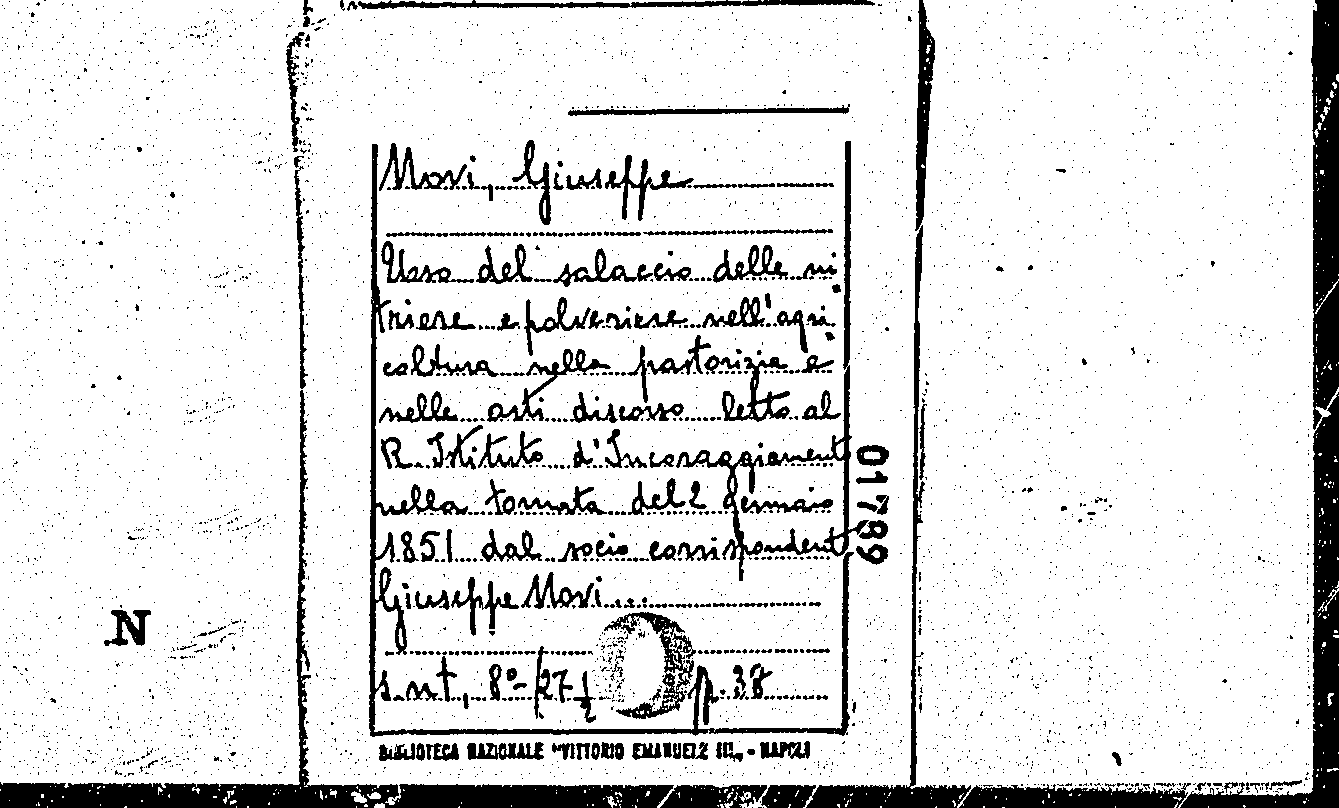 Novi, Giuseppe
Uso del salaccio delle ni
triere e polveriere nell'agri
coltura nella pastorizia e
nelle arti discorso letto al
R. Istituto d'Incoraggiament
nella tornata del 2 Gennaio
1851 dal socio corrispondent
Giuseppe Novi...
s.n.t, 8°- 27 1/2 p. 38
BIBLIOTECA NAZIONALE "VITTORIO EMANUELE III„ - NAPOLI
01789
N